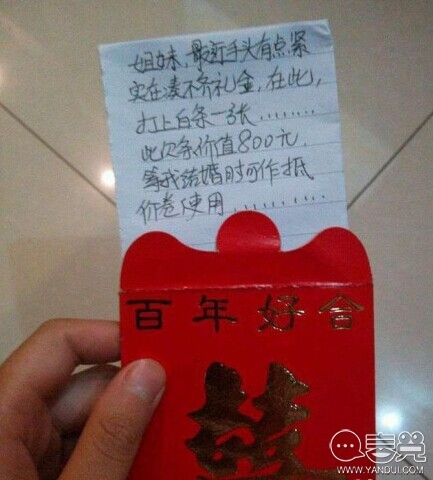 姐妹，最近手头有点紧
实在凑不齐礼金，在此，
打上白条一张........
此欠条价值800元.
等我结婚时可作抵
价卷使用..........
百年好合
囍
YANDUI.COM